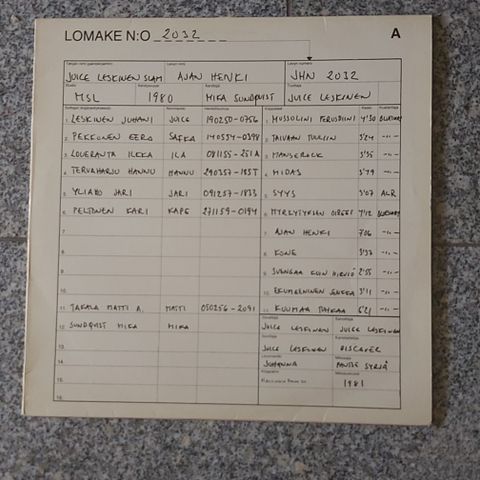 LOMAKE N:O 2032 A
JUICE LESKINEN SLAM AJAN HENKI JHN 2032
MSL 1980 MIKA SUNDQVIST JUICE LESKINEN
1. LESKINEN JUHANI JUICE 190250-0756
2. PEKKONEN EERO SAFKA 140554-0398
3. LOUERANTA ILKKA ILA 081155-251A
4. TERVAHARJU HANNU HANNU 290357-185T
5. YLIAHO JARI JARI 091257-1833
6. PELTONEN KARI KAPE 271159-0194
7.
8.
9.
10.
11. TAKALA MATTI A. MATTI 050256-2091
12. SUNDQVIST MIKA MIKA
13.
14.
15.
16.
1 MUSSOLINI PERUSDIINI 4'30
2 TAIVAAN TUULIIN 3'24 -"-
3 MANSEROCK 3'35 -"-
4 MIDAS 3'49 -"-
5 SYYS 3'07 ALR
6 MYRKYTYKSEN OIREET 7'12
7 AJAN HENKI 7'06 -"-
8 KONE 3'37 -"-
9 SVENGAA KUIN HIRVIÖ 2'55 -"-
10 EKUMEENINEN JENKKA 3'11 -"-
11 KUUMAA TUHKAA 6'21 -"-
JUICE LESKINEN JUICE LESKINEN
JUICE LESKINEN DISCOVER
JOHANNA PANTSE SYRJÄ
1981